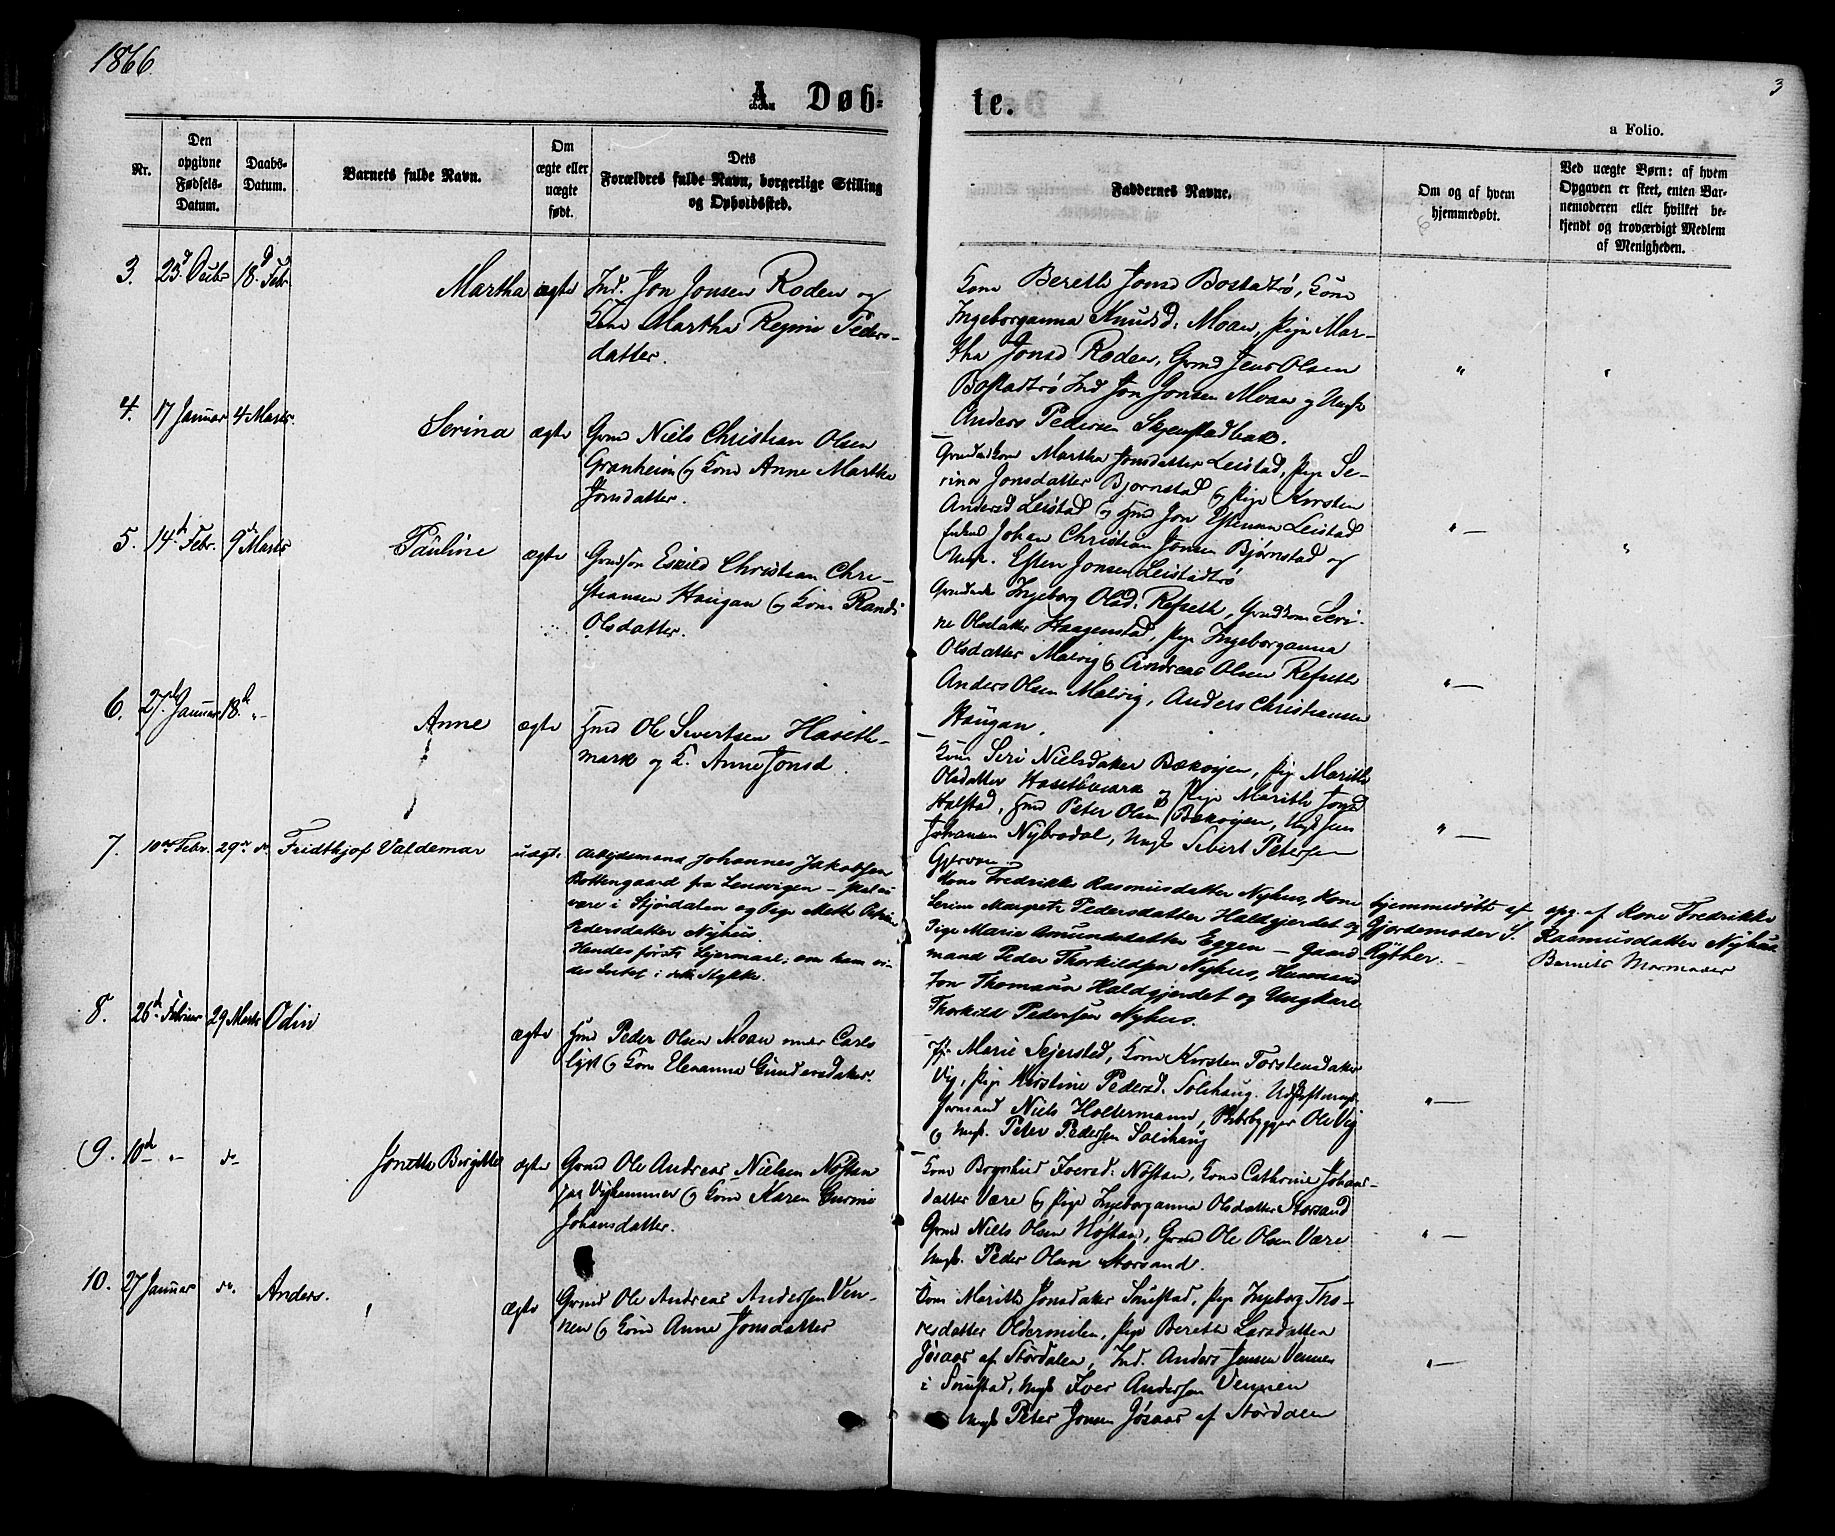 1866.
3
A. Døb-
te.
a Folio.
Nr.
Den opgivne Fødsels-Datum.
Daabs-Datum.
Barnets fulde Navn.
Om ægte eller uægte født.
Dets Forældres fulde Navn, borgerlige Stilling og Opholdssted.
Faddernes Navne.
Om og af hvem hjemmedøbt.
Ved uægte Børn: af hvem Opgaven er skeet, enten Barnemoderen eller hvilket bekjendt og troværdigt Medlem af Menigheden.
3. 23d Octbr 18d Febr. Martha ægte Ind. Jon Jonsen Roden og
Kone Martha Regine Peders-
datter.
Kone Bereth Jonsd Bostadtrø, Kone
Ingeborganna Knudsd. Moan, Pige Mar-
tha Jonsd Roden, Grmd Jens Olsen
Bostadtrø Ind Jon Jonsen Moan og Ungk
Anders Pedersen
4. 17 Januar 4 Marts. Serina ægte Grmd Niels Christian Olsen
Granheim og Kone Anne Martha
Jonsdatter.
Martha Jonsdatter Leistad, Pige Se-
rina Jonsdatter Bjørnstad og Pige Kirsten
Andersd Leistad og Hmd Jon Estensen Leistad
Johan Christian Jonsen Bjørnstad og
Ungk. Esten Jonsen Leistadtrø
5. 14d Febr. 9d Marts Pauline ægte Christian Chri-
stiansen Haugan og Kone Randi
Olsdatter.
Ingeborg Olsd. Refseth, Seri-
ne Olsdatter Haagenstad, Pige Ingeborganna
Olsdatter Malvig og Andreas Olsen Refseth
Anders Olsen Malvig, Anders Christiansen
Haugan.
6. 27d Januar 18.d „- Anne ægte Hmd Ole Sivertsen Haseth-
mark og K. Anne Jonsd.
Kone Seri Nielsdatter, Pige Marith
Olsdatter og Pige Marith Jonsd
Halstad, Hmd Peter Olsen, Ungk Jens
Johansen Nybrodal, Ungk Sivert Petersen
7. 10de Febr. 29de do Fridthjof Valdemar uægte Arbeidsmand Johannes Jakobsen
Bottengaard fra Lensvigen - skal nu
være i Stjørdalen og Pige Mette
Pedersdatter Nyhus.
Hendes første Leiermaal; om ham vi-
des Intet i dette Stykke.
Kone Fredrikke Rasmusdatter Nyhus, Kone
Serine Margrete Pedersdatter Haldgjerdet og
Pige Marie Amundsdatter Eggen - Gaard-
mand Peder Thorkildsen Nyhus, Huusmand
Jon Thomasen Haldgjerdet og Ungkarl
Thorkild Pedersen Nyhus.
Hjemmedøbt af
Gjordemoder S.
Rÿther.
opg. af Kone Fredrikke
Rasmusdatter Nyhus
Barnets Mormoder
8. 26d Februar 29 Marts Odin ægte Hmd Peder Olsen Moan under Carls
lyst og Kone Elenanna Gundersdatter.
Pige Marie Sejersted, Kone Kirsten Torstensdatter
Vig, Pige Kirstine Pedersd. Solihaug.
Niels Holtermann, Ole Vig
og Ungk. Peter Pedersen Solihaug
9. 10d „- do Jonette Birgitte ægte Grmd Ole Andreas Nielsen Nøstan
paa Vighammer og Kone Karen Gurine
Johansdatter.
Kone Brynhild Iversd. Nøstan, Kone Cathrine Johans-
datter Være og Pige Ingeborganna Olsdatter Storsand
Grmd Niels Olsen Nøstan, Grmd Ole Olsen Være
Ungk. Peder Olsen Storsand.
10. 27 Januar do. Anders. ægte Grmd Ole Andreas Andersen Ven-
nen og Kone Anne Jonsdatter
Kone Marith Jonsdatter Pige Ingeborg Tho-
resdatter Oldermelen, Pige Bereth Larsdatter
Jøsaas af Størdalen, Ind. Anders Jensen Vennen
i Ungk Iver Andersen Vennen
Ungk Peter Jonsen Jøsaas af Størdalen